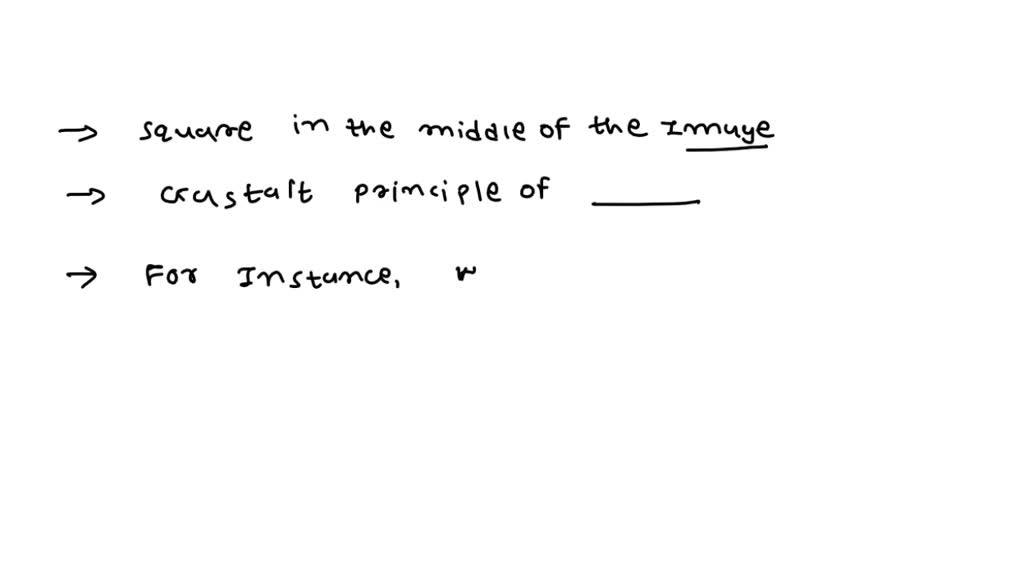 → square in the middle of the Image
→ Gestalt principle of ______
→ For Instance, w